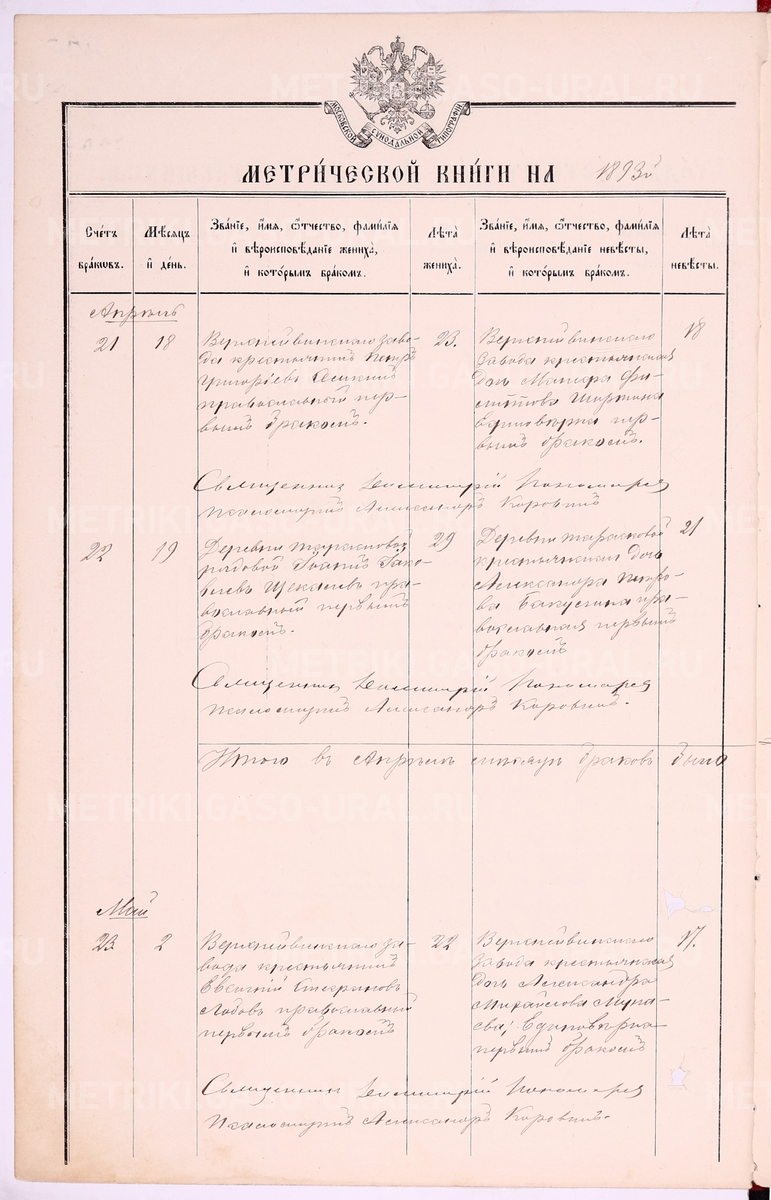 МОСКОВСКОЙ СѴНОДАЛЬНОЙ ТИПОГРАФІИ
МЕТРИ́ЧЕСКОЙ КНИ́ГИ НА 1893й
Сче́тъ бра́кѡвъ.
Мѣ́сяцъ и҆ де́нь.
Зва́нїе, и҆́мя, ѻ҆́тчество, фами́лїя
и҆ вѣроисповѣ́данїе жениха̀,
и҆ кото́рымъ бра́комъ.
Лѣта̀ жениха̀.
Зва́нїе, и҆́мя, ѻ҆́тчество, фами́лїя
и҆ вѣроисповѣ́данїе невѣ́сты,
и҆ кото́рымъ бра́комъ.
Лѣта̀ невѣ́сты.
Апрѣль
21
18
Верхнейвинскаго заво-
да крестьянинъ Петръ
Григоріевъ
православный пер-
вымъ бракомъ.
23.
Верхнейвинскаго
завода крестьянская
дочь Фи-
липпова
единовѣрка пер-
вымъ бракомъ.
18
Священникъ Димитрій Пономаревъ
Псаломщикъ Александръ Коровинъ
22
19
Деревни Тарасковой
рядовой Іоаннъ Іако-
влевъ Щекалевъ пра-
вославный первымъ
бракомъ.
29
Деревни Тарасковой
крестьянская дочь
Александра Петро-
ва пра-
вославная первымъ
бракомъ
21
Священникъ Димитрій Пономаревъ
Псаломщикъ Александръ Коровинъ.
Итого въ Апрѣлѣ мѣсяцѣ браковъ было
Май
23.
2
Верхнейвинскаго за-
вода крестьянинъ
Евгеній Стефановъ
Лобовъ православный
первымъ бракомъ
22
Верхнейвинскаго
завода крестьянская
дочь Александра
Михайлова
Единовѣрка
первымъ бракомъ
17.
Священникъ Димитрій Пономаревъ
Псаломщикъ Александръ Коровинъ.
METRIKI.GASO-URAL.RU